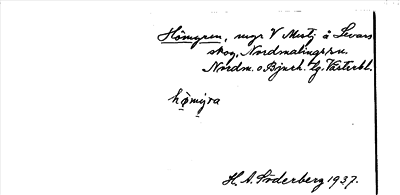 Hömyren, myr V Mestj å Levars
skog, Nordmalings sn.
Nordm. o Bjurh. tg. Västerbt.
hömýra
H. A. Söderberg 1937.